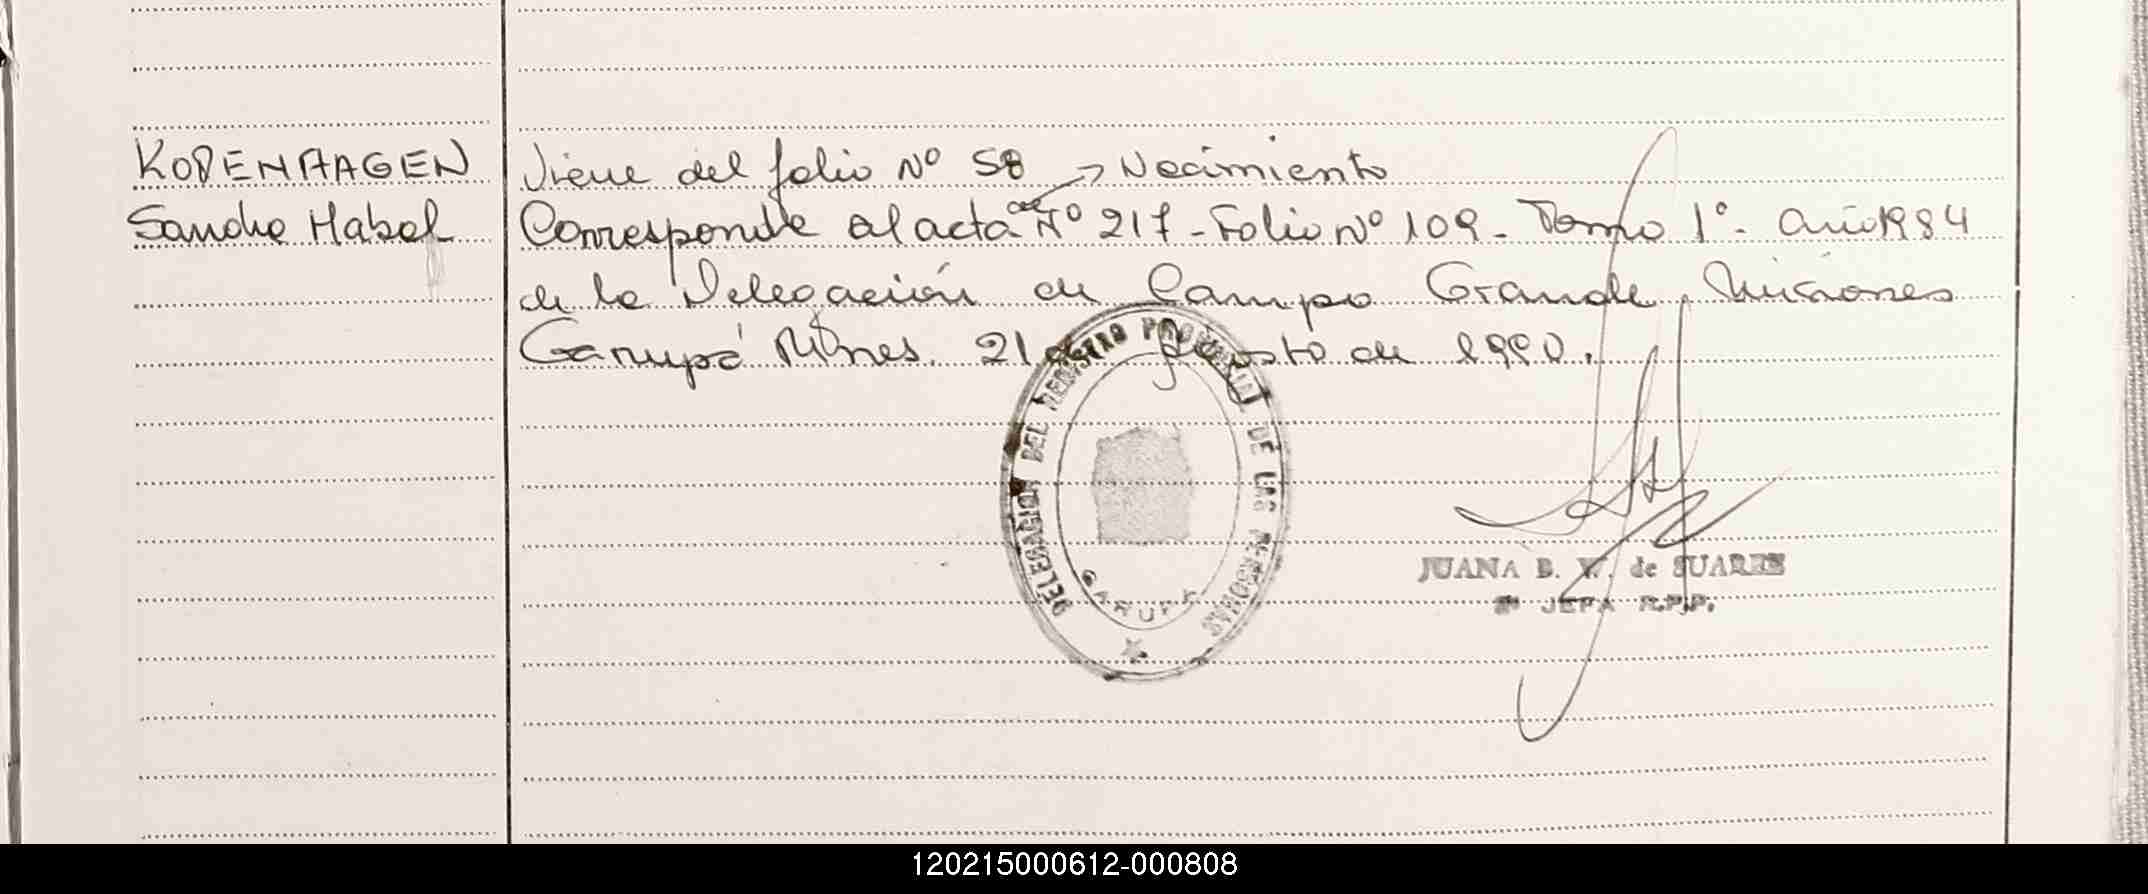 KOPENHAGEN
Sandra Mabel
Viene del folio Nº 58
Corresponde al acta de Nacimiento Nº 217 - Folio Nº 109 - Tomo 1º - Año 1984
de la Delegación de Campo Grande, Misiones
Garupá Mnes. 21 de Agosto de 1990.
DELEGACION DEL REGISTRO PROVINCIAL DE LAS PERSONAS
GARUPA
JUANA B. W. de SUAREZ
JEFA R.P.P.
120215000612-000808